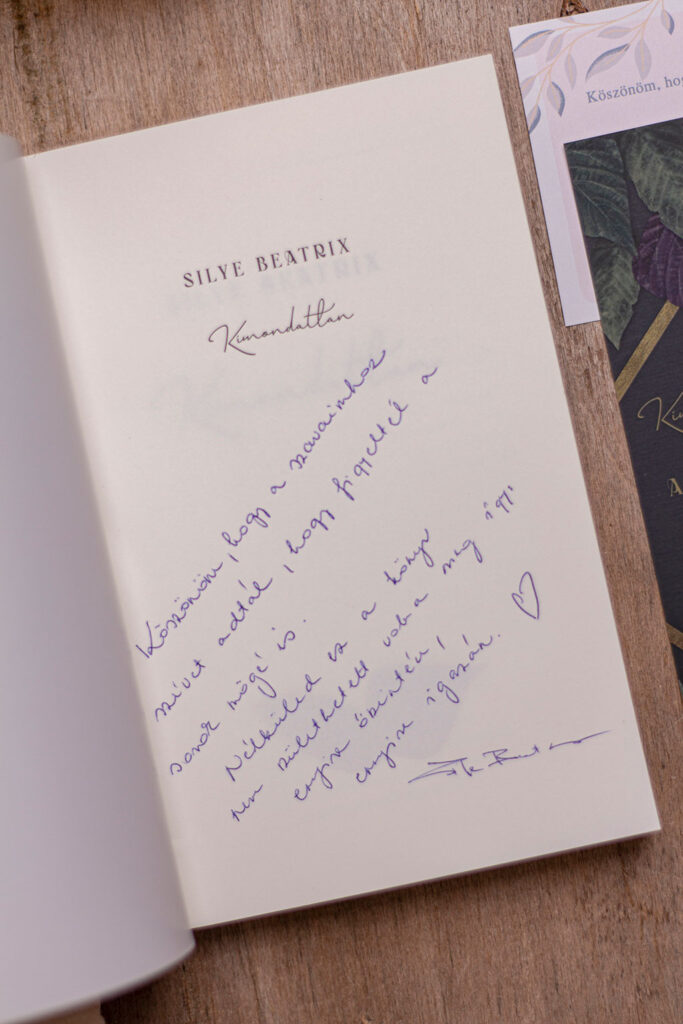 SILYE BEATRIX
Kimondatlan
Köszönöm, hogy a szavaimhoz
szívet adtál, hogy figyeltél a
sorok mögé is.
Nélküled ez a könyv
nem születhetett volna meg így:
ennyire őszintén,
ennyire igazán. ♡
Köszönöm, hog